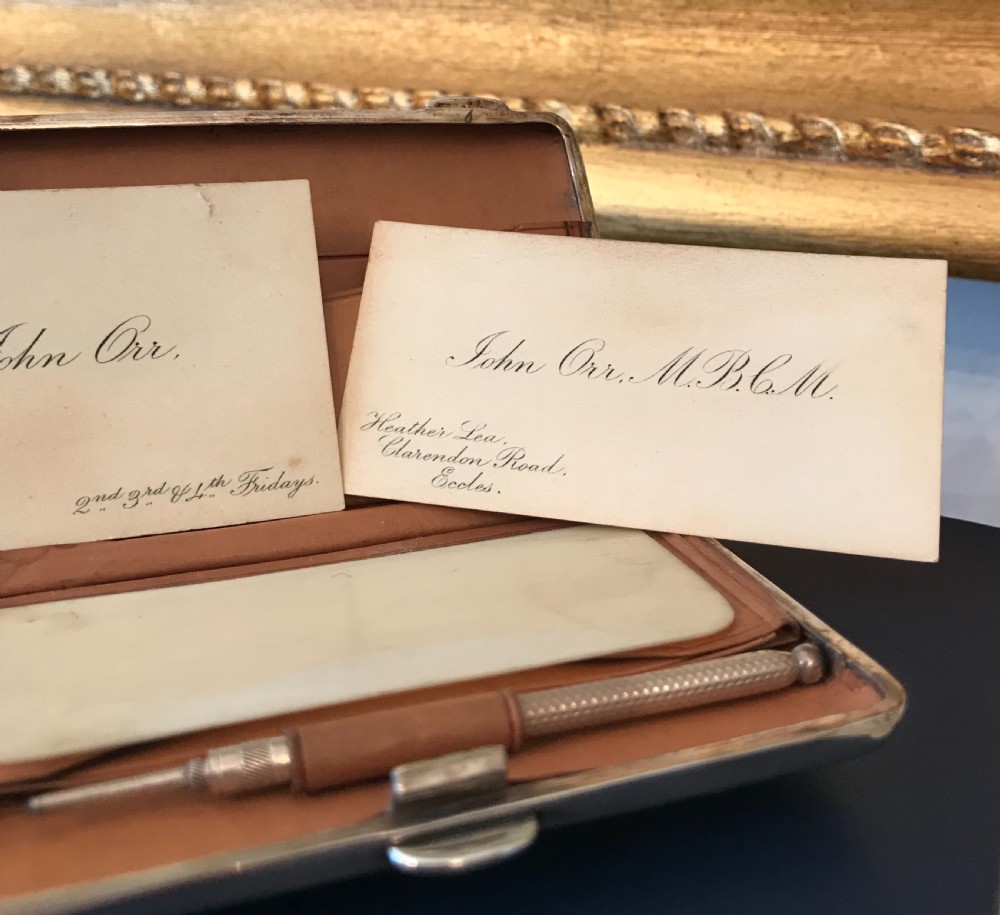 John Orr.
2nd 3rd & 4th Fridays.
John Orr. M.B.C.M.
Heather Lea,
Clarendon Road,
Eccles.